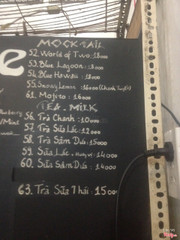 MOCKTAIL
e
52. World of Two: 18000
53. Blue Lagoon: 18000
54. Blue Hawaii: 18000
55.
61. Mojito: 18000
TEA MILK
56. Trà Chanh: 10000
57. Trà Sữa Lắc: 12000
58. Trà Sâm Dứa: 15000
59. Sữa Lắc
60. Sữa Sâm Dứa: 15000
63. Trà Sữa Thái: 15000